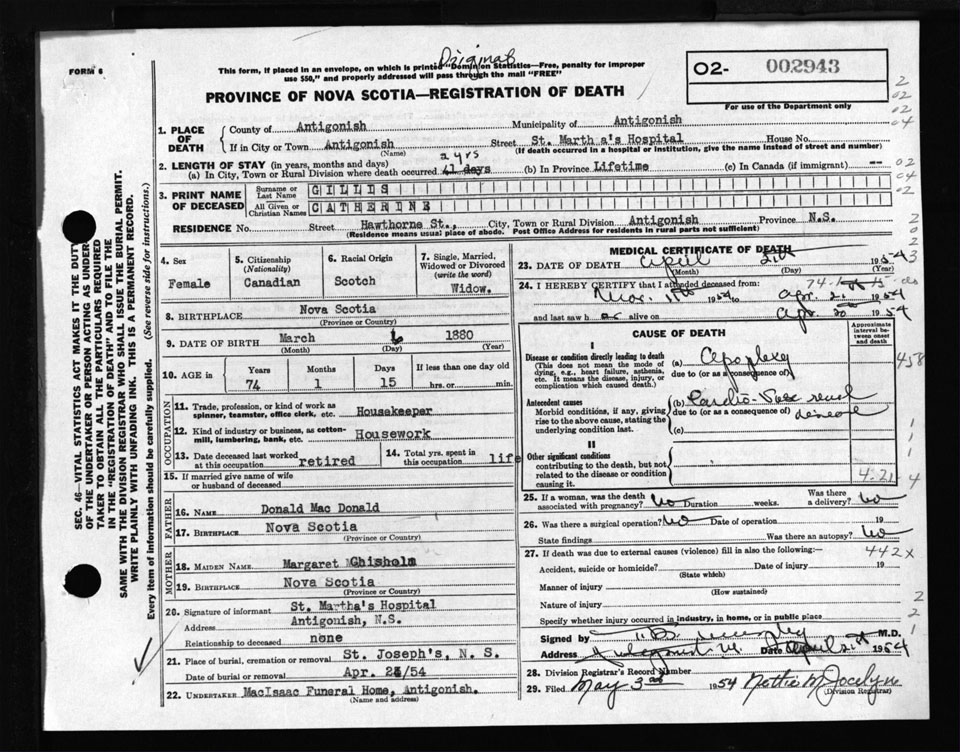 FORM 6
Original
This form, if placed in an envelope, on which is printed "Dominion Statistics—Free, penalty for improper
use $50," and properly addressed will pass through the mail "FREE"
02- 002943
For use of the Department only
PROVINCE OF NOVA SCOTIA—REGISTRATION OF DEATH
1. PLACE OF DEATH
County of Antigonish Municipality of Antigonish
If in City or Town Antigonish Street St. Martha's Hospital House No.
(Name) (If death occurred in a hospital or institution, give the name instead of street and number)
2. LENGTH OF STAY (in years, months and days)
(a) In City, Town or Rural Division where death occurred 2 yrs days (b) In Province Lifetime (c) In Canada (if immigrant) --
3. PRINT NAME OF DECEASED
Surname or Last Name GILLIS
All Given or Christian Names CATHERINE
RESIDENCE No. Street Hawthorne St., City, Town or Rural Division Antigonish Province N.S.
(Residence means usual place of abode. Post Office Address for residents in rural parts not sufficient)
4. Sex
Female
5. Citizenship
(Nationality)
Canadian
6. Racial Origin
Scotch
7. Single, Married,
Widowed or Divorced
(write the word)
Widow.
8. BIRTHPLACE Nova Scotia
(Province or Country)
9. DATE OF BIRTH March 6 1880
(Month) (Day) (Year)
10. AGE in Years Months Days If less than one day old
74 1 15 hrs. or min.
OCCUPATION
11. Trade, profession, or kind of work as
spinner, teamster, office clerk, etc. Housekeeper
12. Kind of industry or business, as cotton-
mill, lumbering, bank, etc. Housework
13. Date deceased last worked
at this occupation retired
14. Total yrs. spent in
this occupation life
15. If married give name of wife
or husband of deceased
FATHER
16. NAME Donald Mac Donald
17. BIRTHPLACE Nova Scotia
(Province or Country)
MOTHER
18. MAIDEN NAME Margaret Chisholm
19. BIRTHPLACE Nova Scotia
(Province or Country)
20. Signature of informant St. Martha's Hospital
Address Antigonish, N.S.
Relationship to deceased none
21. Place of burial, cremation or removal St. Joseph's, N. S.
Date of burial or removal Apr. /54
22. UNDERTAKER MacIsaac Funeral Home, Antigonish.
(Name and address)
MEDICAL CERTIFICATE OF DEATH
23. DATE OF DEATH April 21st 1954
(Month) (Day) (Year)
24. I HEREBY CERTIFY that I attended deceased from:
Mar. 1954 to Apr. 21 1954
and last saw h er alive on Apr. 20th 1954
CAUSE OF DEATH
Approximate interval between onset and death
I
Disease or condition directly leading to death
(This does not mean the mode of
dying, e.g., heart failure, asthenia,
etc. It means the disease, injury, or
complication which caused death.)
(a) Apoplexy
due to (or as a consequence of)
Antecedent causes
Morbid conditions, if any, giving
rise to the above cause, stating the
underlying condition last.
(b) Cardio-Vasc renal
due to (or as a consequence of) disease
(c)
II
Other significant conditions
contributing to the death, but not
related to the disease or condition
causing it.
4.21
25. If a woman, was the death
associated with pregnancy? No Duration weeks. Was there a delivery? No
26. Was there a surgical operation? No Date of operation 19
State findings Was there an autopsy? No
442X
27. If death was due to external causes (violence) fill in also the following:—
Accident, suicide or homicide? Date of injury 19
(State which)
Manner of injury
(How sustained)
Nature of injury
Specify whether injury occurred in industry, in home, or in public place
Signed by M.D.
Address Antigonish Date April 21st 1954
28. Division Registrar's Record Number
29. Filed May 3rd 1954 Nettie M Jocelyn
(Division Registrar)
SEC. 46—VITAL STATISTICS ACT MAKES IT THE DUTY
OF THE UNDERTAKER OR PERSON ACTING AS UNDER-
TAKER TO OBTAIN ALL THE PARTICULARS REQUIRED
IN THE "REGISTRATION OF DEATH" AND TO FILE THE
SAME WITH THE DIVISION REGISTRAR WHO SHALL ISSUE THE BURIAL PERMIT.
WRITE PLAINLY WITH UNFADING INK. THIS IS A PERMANENT RECORD.
Every item of information should be carefully supplied. (See reverse side for instructions.)
2
02
02
04
02
04
02
2
0
2
3
458
1
1
1
4
2
2
1